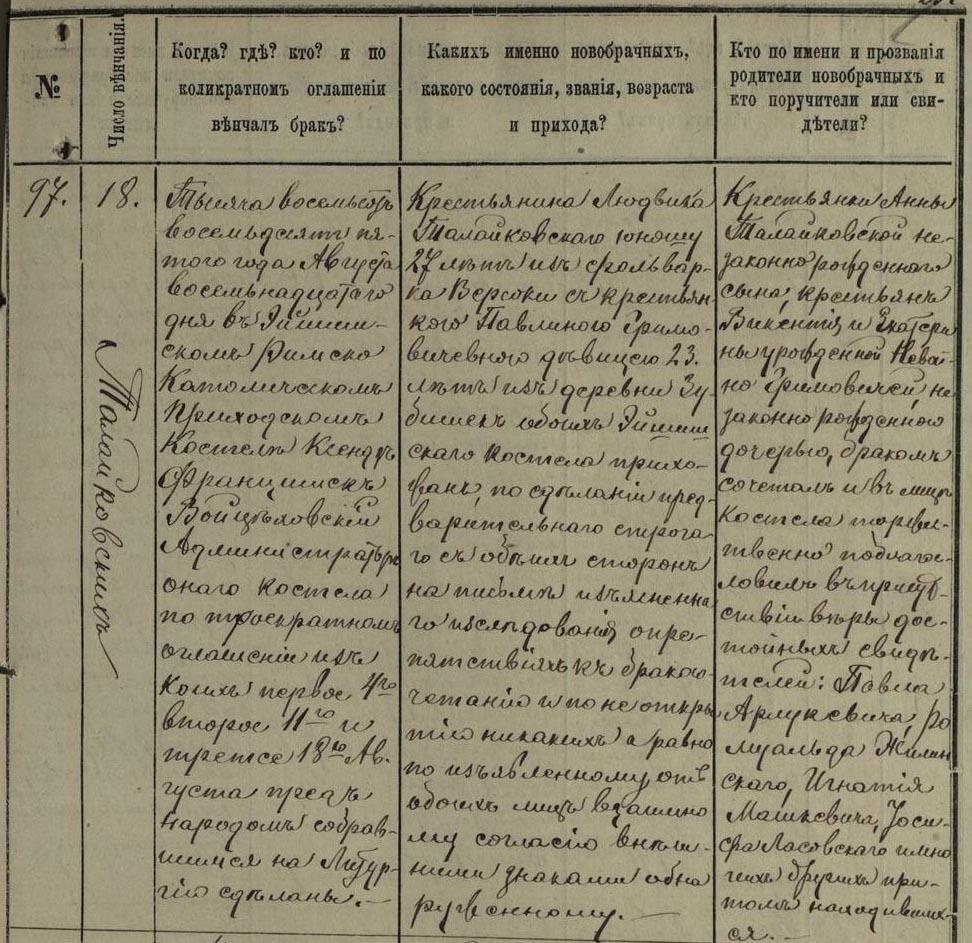 №
Число вѣнчанія.
Когда? гдѣ? кто? и по
коликратномъ оглашеніи
вѣнчалъ бракъ?
Какихъ именно новобрачныхъ,
какого состоянія, званія, возраста
и прихода?
Кто по имени и прозванія
родители новобрачныхъ и
кто поручители или сви-
дѣтели?
97.
18.
Талайковскихъ
Тысяча восемьсотъ
восемьдесятъ пя-
того года Августа
восемьнадцатого
дня въ Эйшиш-
скомъ Римско
Католическомъ
Приходскомъ
Костелѣ Ксендзъ
Францишекъ
Войцѣховскій
Администраторъ
онаго костела
по троекратномъ
оглашеніи изъ
коихъ первое 4го
второе 11го и
третсе 18го Ав-
густа предъ
народомъ собрав-
шимся на Литур-
гію сдѣланы.
Крестьянина Людвика
Талайковскаго юношу
27 лѣтъ изъ фольвар-
ка Версоки съ крестьян-
кого Павлиного Гримо-
вичевного дѣвицею 23.
лѣтъ изъ деревни Зу-
бишекъ обоихъ Эйшиш
скаго костела прихо-
жанъ, по сдѣланіи пред-
варительнаго строга-
го съ обѣихъ сторонъ
на письмѣ изъясненна
го изслѣдованія о пре-
пятствіяхъ къ бракосо-
четанію и по не откры
тію никакихъ а равно
по изъявленному отъ
обоихъ лицъ взаимно
му согласію внѣш-
ними знаками обна
руженному.
Крестьянки Анны
Талайковской не-
законнорожденного
сына, крестьянъ
Викентія и Екатери
ны урожденной Невой-
но Гримовичей не
законнорожденного
дочерью, бракомъ
сочеталъ и въ лицѣ
костела торжес-
твенно поблагос-
ловилъ въ присут-
ствіи вѣры дос-
тойныхъ свидѣ-
телей: Павла
Арлукевича, Ро
муальда Жилин
скаго, Игнатія
Машкевича, Іоси-
фа Ласовскаго и мно
гихъ другихъ при-
томъ находивших-
ся.